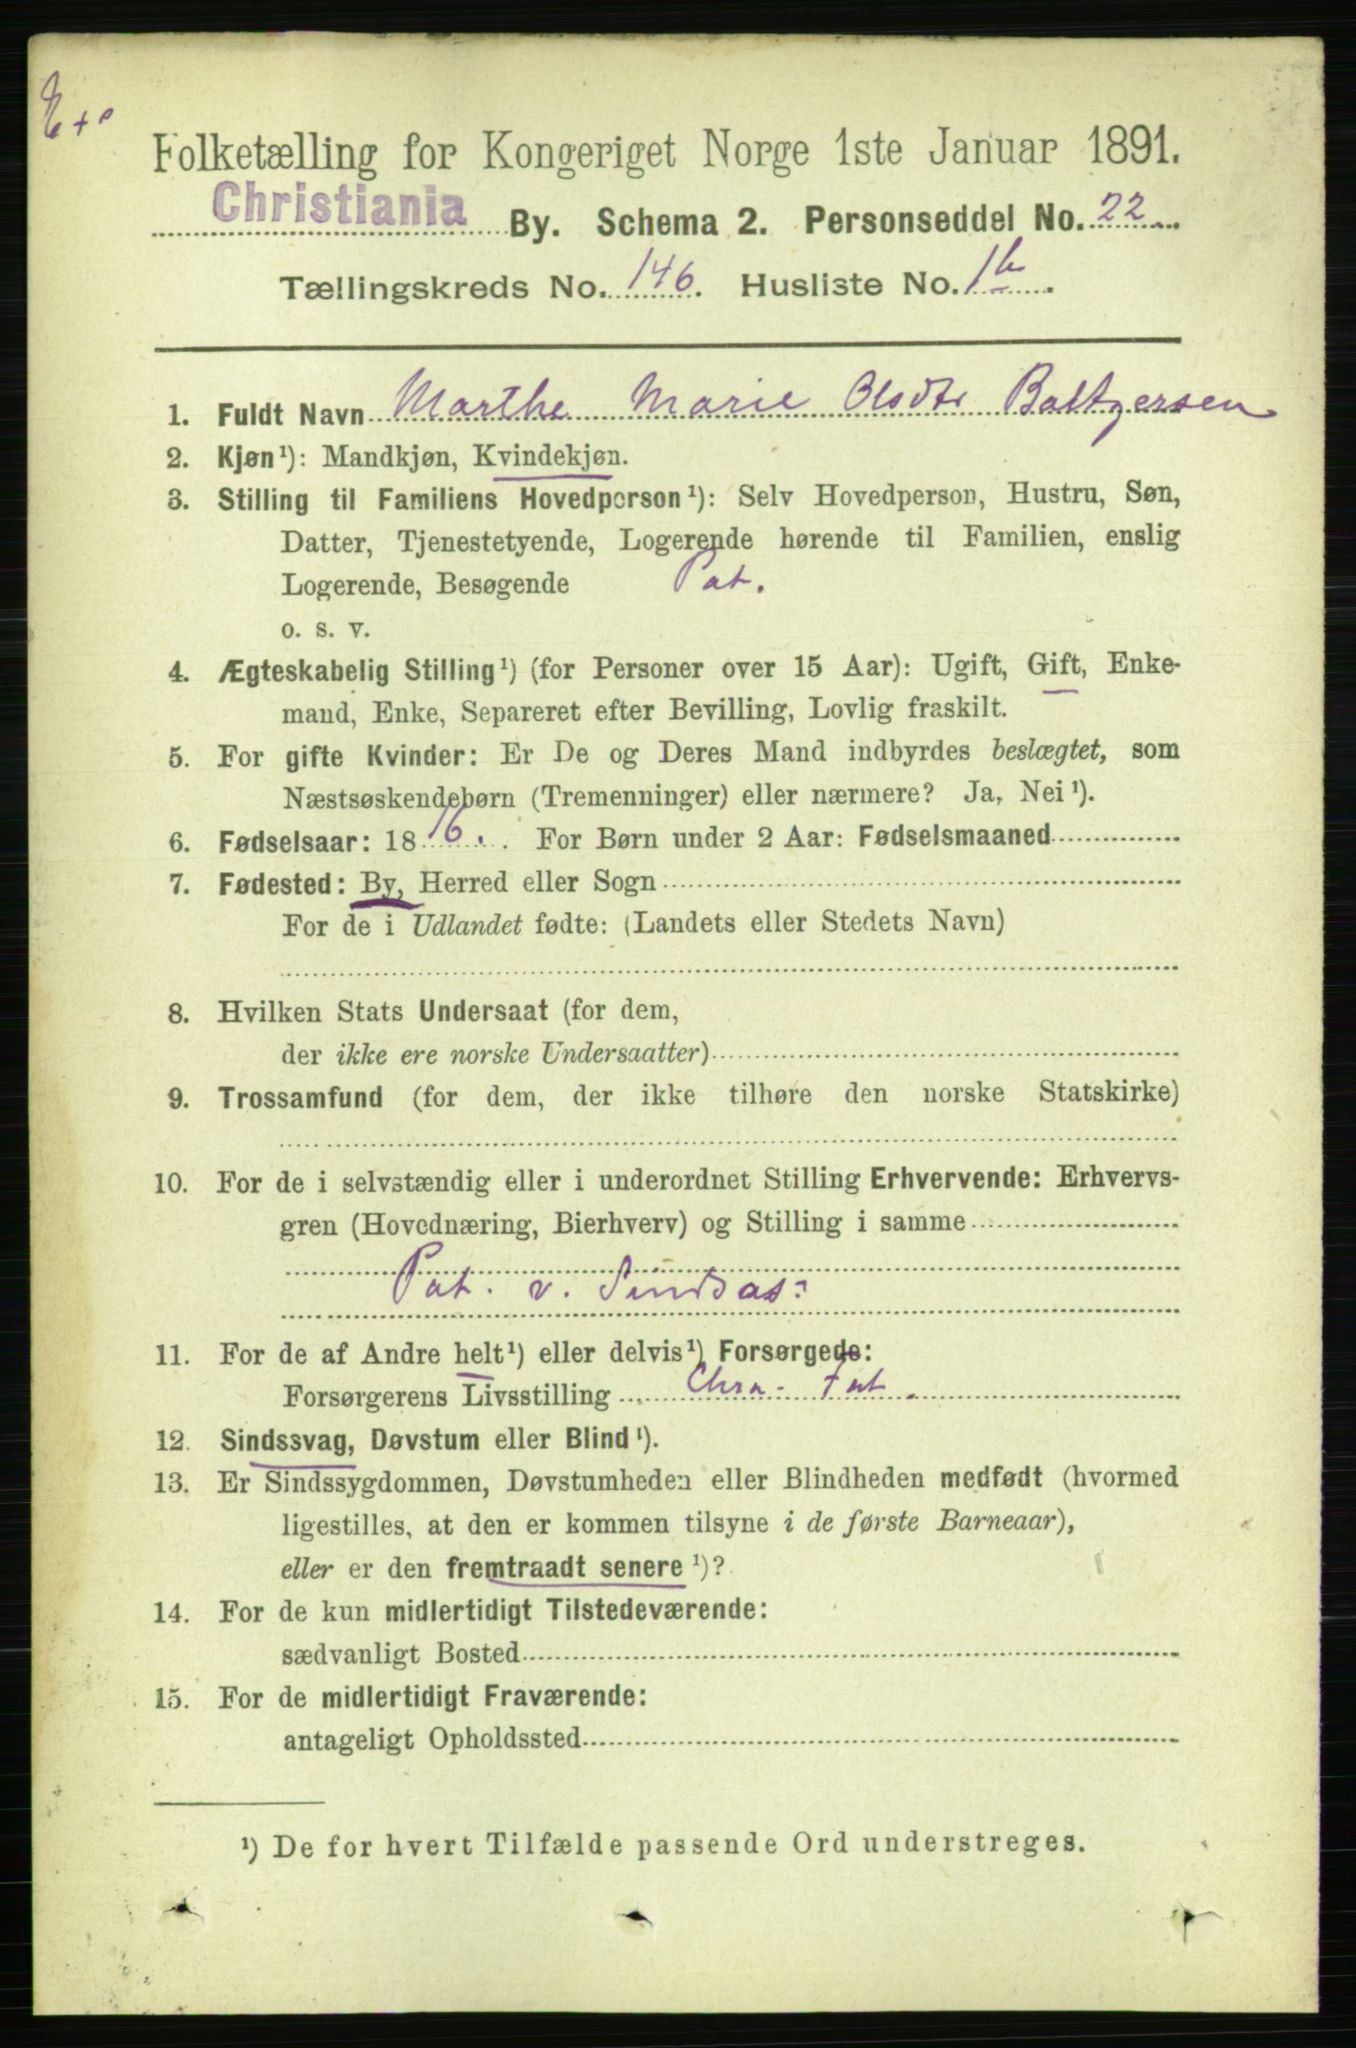 Folketælling for Kongeriget Norge 1ste Januar 1891.
Christiania By. Schema 2. Personseddel No. 22
Tællingskreds No. 146. Husliste No. 1b
1. Fuldt Navn Marthe Marie Olsdtr Baltzersen
2. Kjøn¹): Mandkjøn, Kvindekjøn.
3. Stilling til Familiens Hovedperson¹): Selv Hovedperson, Hustru, Søn,
Datter, Tjenestetyende, Logerende hørende til Familien, enslig
Logerende, Besøgende Pat.
o. s. v.
4. Ægteskabelig Stilling¹) (for Personer over 15 Aar): Ugift, Gift, Enke-
mand, Enke, Separeret efter Bevilling, Lovlig fraskilt.
5. For gifte Kvinder: Er De og Deres Mand indbyrdes beslægtet, som
Næstsøskendebørn (Tremenninger) eller nærmere? Ja, Nei¹).
6. Fødselsaar: 1816. For Børn under 2 Aar: Fødselsmaaned
7. Fødested: By, Herred eller Sogn
For de i Udlandet fødte: (Landets eller Stedets Navn)
8. Hvilken Stats Undersaat (for dem,
der ikke ere norske Undersaatter)
9. Trossamfund (for dem, der ikke tilhøre den norske Statskirke)
10. For de i selvstændig eller i underordnet Stilling Erhvervende: Erhvervs-
gren (Hovednæring, Bierhverv) og Stilling i samme
Pat. v. Sindsas:
11. For de af Andre helt¹) eller delvis¹) Forsørgede:
Forsørgerens Livsstilling Chra.
12. Sindssvag, Døvstum eller Blind¹).
13. Er Sindssygdommen, Døvstumheden eller Blindheden medfødt (hvormed
ligestilles, at den er kommen tilsyne i de første Barneaar),
eller er den fremtraadt senere¹)?
14. For de kun midlertidigt Tilstedeværende:
sædvanligt Bosted
15. For de midlertidigt Fraværende:
antageligt Opholdssted
¹) De for hvert Tilfælde passende Ord understreges.